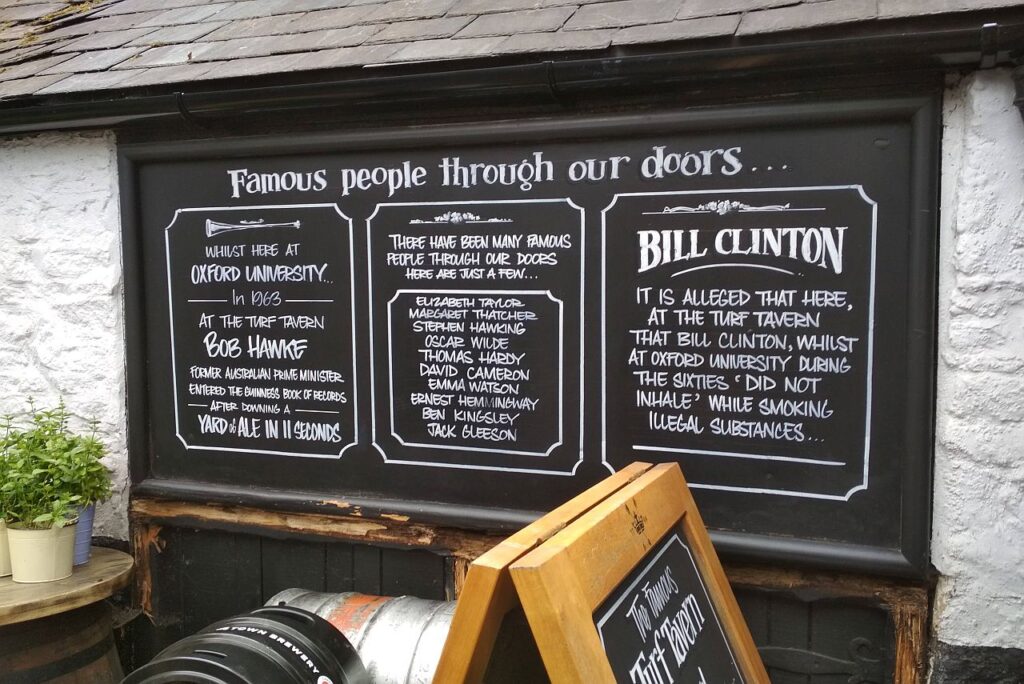 Famous people through our doors...
WHILST HERE AT
OXFORD UNIVERSITY...
In 1963
AT THE TURF TAVERN
BOB HAWKE
FORMER AUSTRALIAN PRIME MINISTER
ENTERED THE GUINNESS BOOK OF RECORDS
AFTER DOWNING A
YARD of ALE IN 11 SECONDS
THERE HAVE BEEN MANY FAMOUS
PEOPLE THROUGH OUR DOORS
HERE ARE JUST A FEW...
ELIZABETH TAYLOR
MARGARET THATCHER
STEPHEN HAWKING
OSCAR WILDE
THOMAS HARDY
DAVID CAMERON
EMMA WATSON
ERNEST HEMMINGWAY
BEN KINGSLEY
JACK GLEESON
BILL CLINTON
IT IS ALLEGED THAT HERE,
AT THE TURF TAVERN
THAT BILL CLINTON, WHILST
AT OXFORD UNIVERSITY DURING
THE SIXTIES 'DID NOT
INHALE' WHILE SMOKING
ILLEGAL SUBSTANCES...
TOWN BREWERY
Turf Tavern